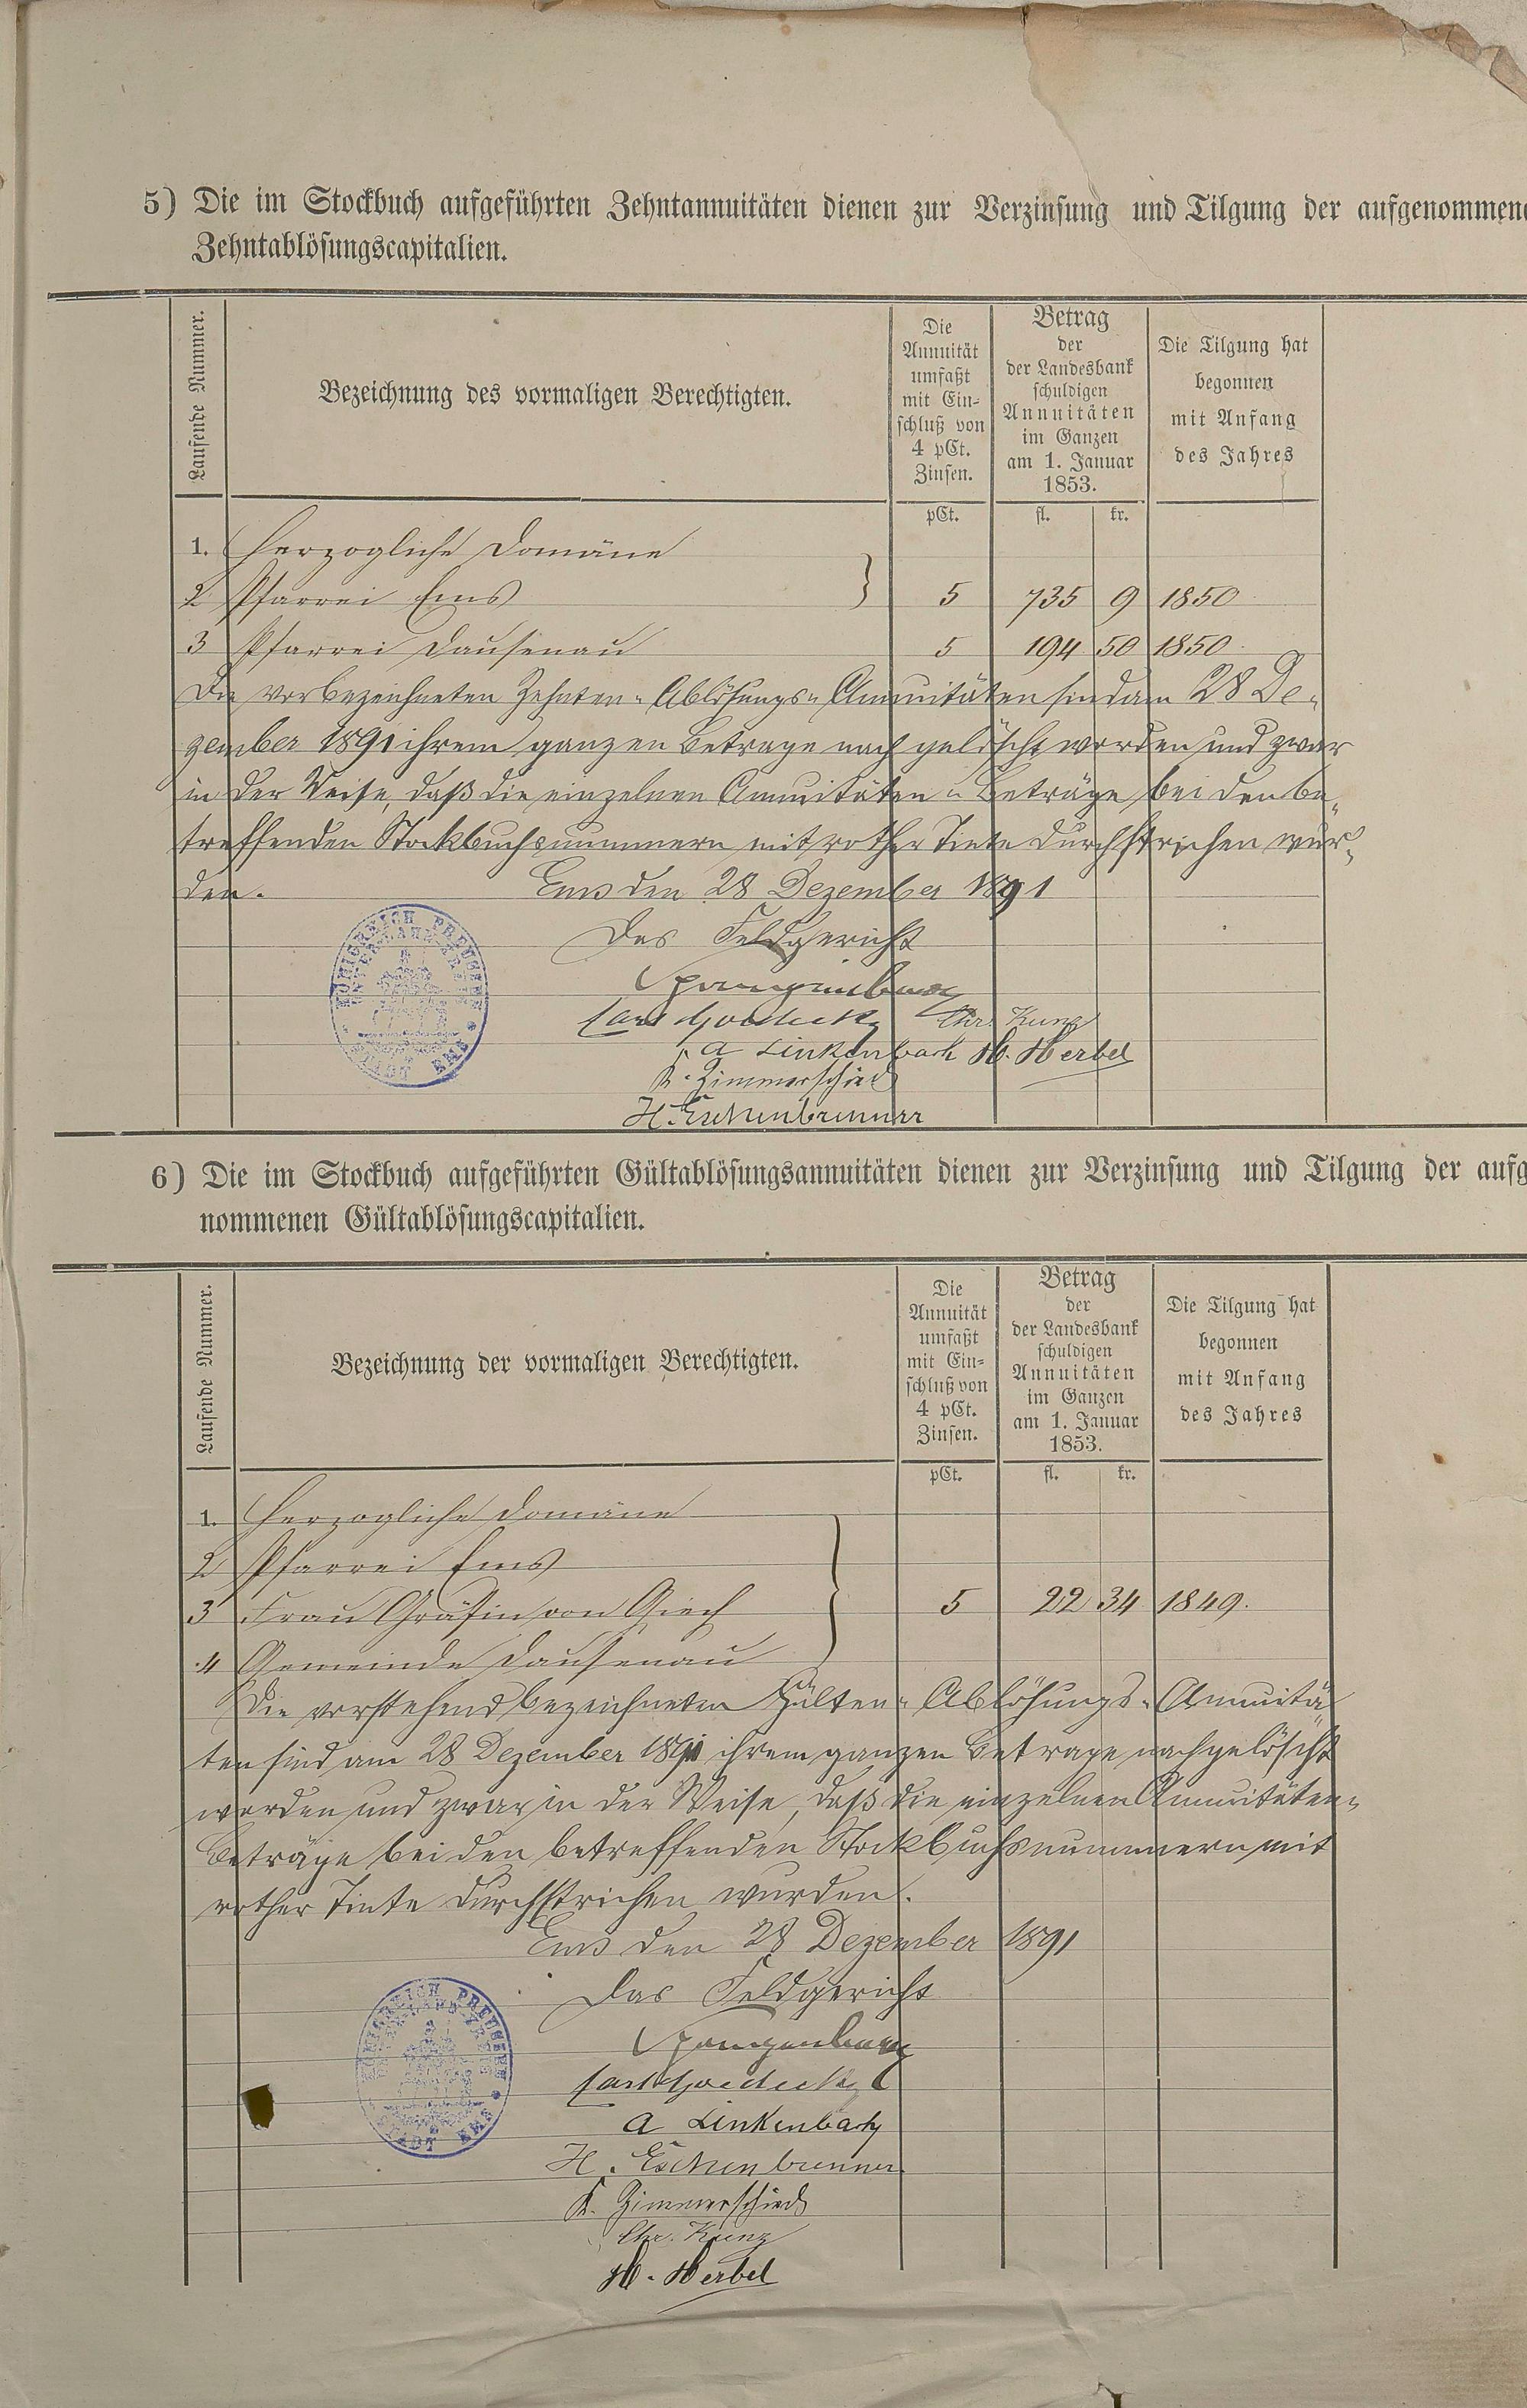 5) Die im Stockbuch aufgeführten Zehntannuitäten dienen zur Verzinsung und Tilgung der aufgenommene
Zehntablösungscapitalien.
Laufende Nummer.
Bezeichnung des vormaligen Berechtigten.
Die Annuität umfaßt mit Ein- schluß von 4 pCt. Zinsen.
Betrag der der Landesbank schuldigen Annuitäten im Ganzen am 1. Januar 1853.
Die Tilgung hat begonnen mit Anfang des Jahres
pCt. fl. kr.
1. Herzogliche Domäne
2 Pfarrei Ems } 5 735 9 1850
3 Pfarrei Dausenau 5 194 50 1850.
Die vorbezeichneten Zehnten-Ablösungs-Annuitäten sind am 28 De-
zember 1891 ihrem ganzen Betrage nach gelöscht worden und zwar
in der Weise, daß die einzelnen Annuitäten-Beträge bei den be-
treffenden Stockbuchsnummern mit rother Tinte durchstrichen wur-
den. Ems den 28 Dezember 1891
Das Feldgericht
Spangenberg
Carl Goedecke Chr. Kunz
A Linkenbach H. Herbel
K. Zimmerschied
H. Eschenbrenner
KÖNIGREICH PREUSSEN
STADT EMS
6) Die im Stockbuch aufgeführten Gültablösungsannuitäten dienen zur Verzinsung und Tilgung der aufg
nommenen Gültablösungscapitalien.
Laufende Nummer.
Bezeichnung der vormaligen Berechtigten.
Die Annuität umfaßt mit Ein- schluß von 4 pCt. Zinsen.
Betrag der der Landesbank schuldigen Annuitäten im Ganzen am 1. Januar 1853.
Die Tilgung hat begonnen mit Anfang des Jahres
pCt. fl. kr.
1. Herzogliche Domäne
2 Pfarrei Ems
3 Frau Gräfin von Giech } 5 22 34 1849.
4 Gemeinde Dausenau
Die vorstehend bezeichneten Gülten-Ablösungs-Annuitä-
ten sind am 28 Dezember 1891 ihrem ganzen Betrage nach gelöscht
worden und zwar in der Weise, daß die einzelnen Annuitäten-
Beträge bei den betreffenden Stockbuchsnummern mit
rother Tinte durchstrichen wurden.
Ems den 28 Dezember 1891
Das Feldgericht
Spangenberg
Carl Goedecke
A Linkenbach
H. Eschenbrenner
K. Zimmerschied
Chr. Kunz
H. Herbel
KÖNIGREICH PREUSSEN
STADT EMS